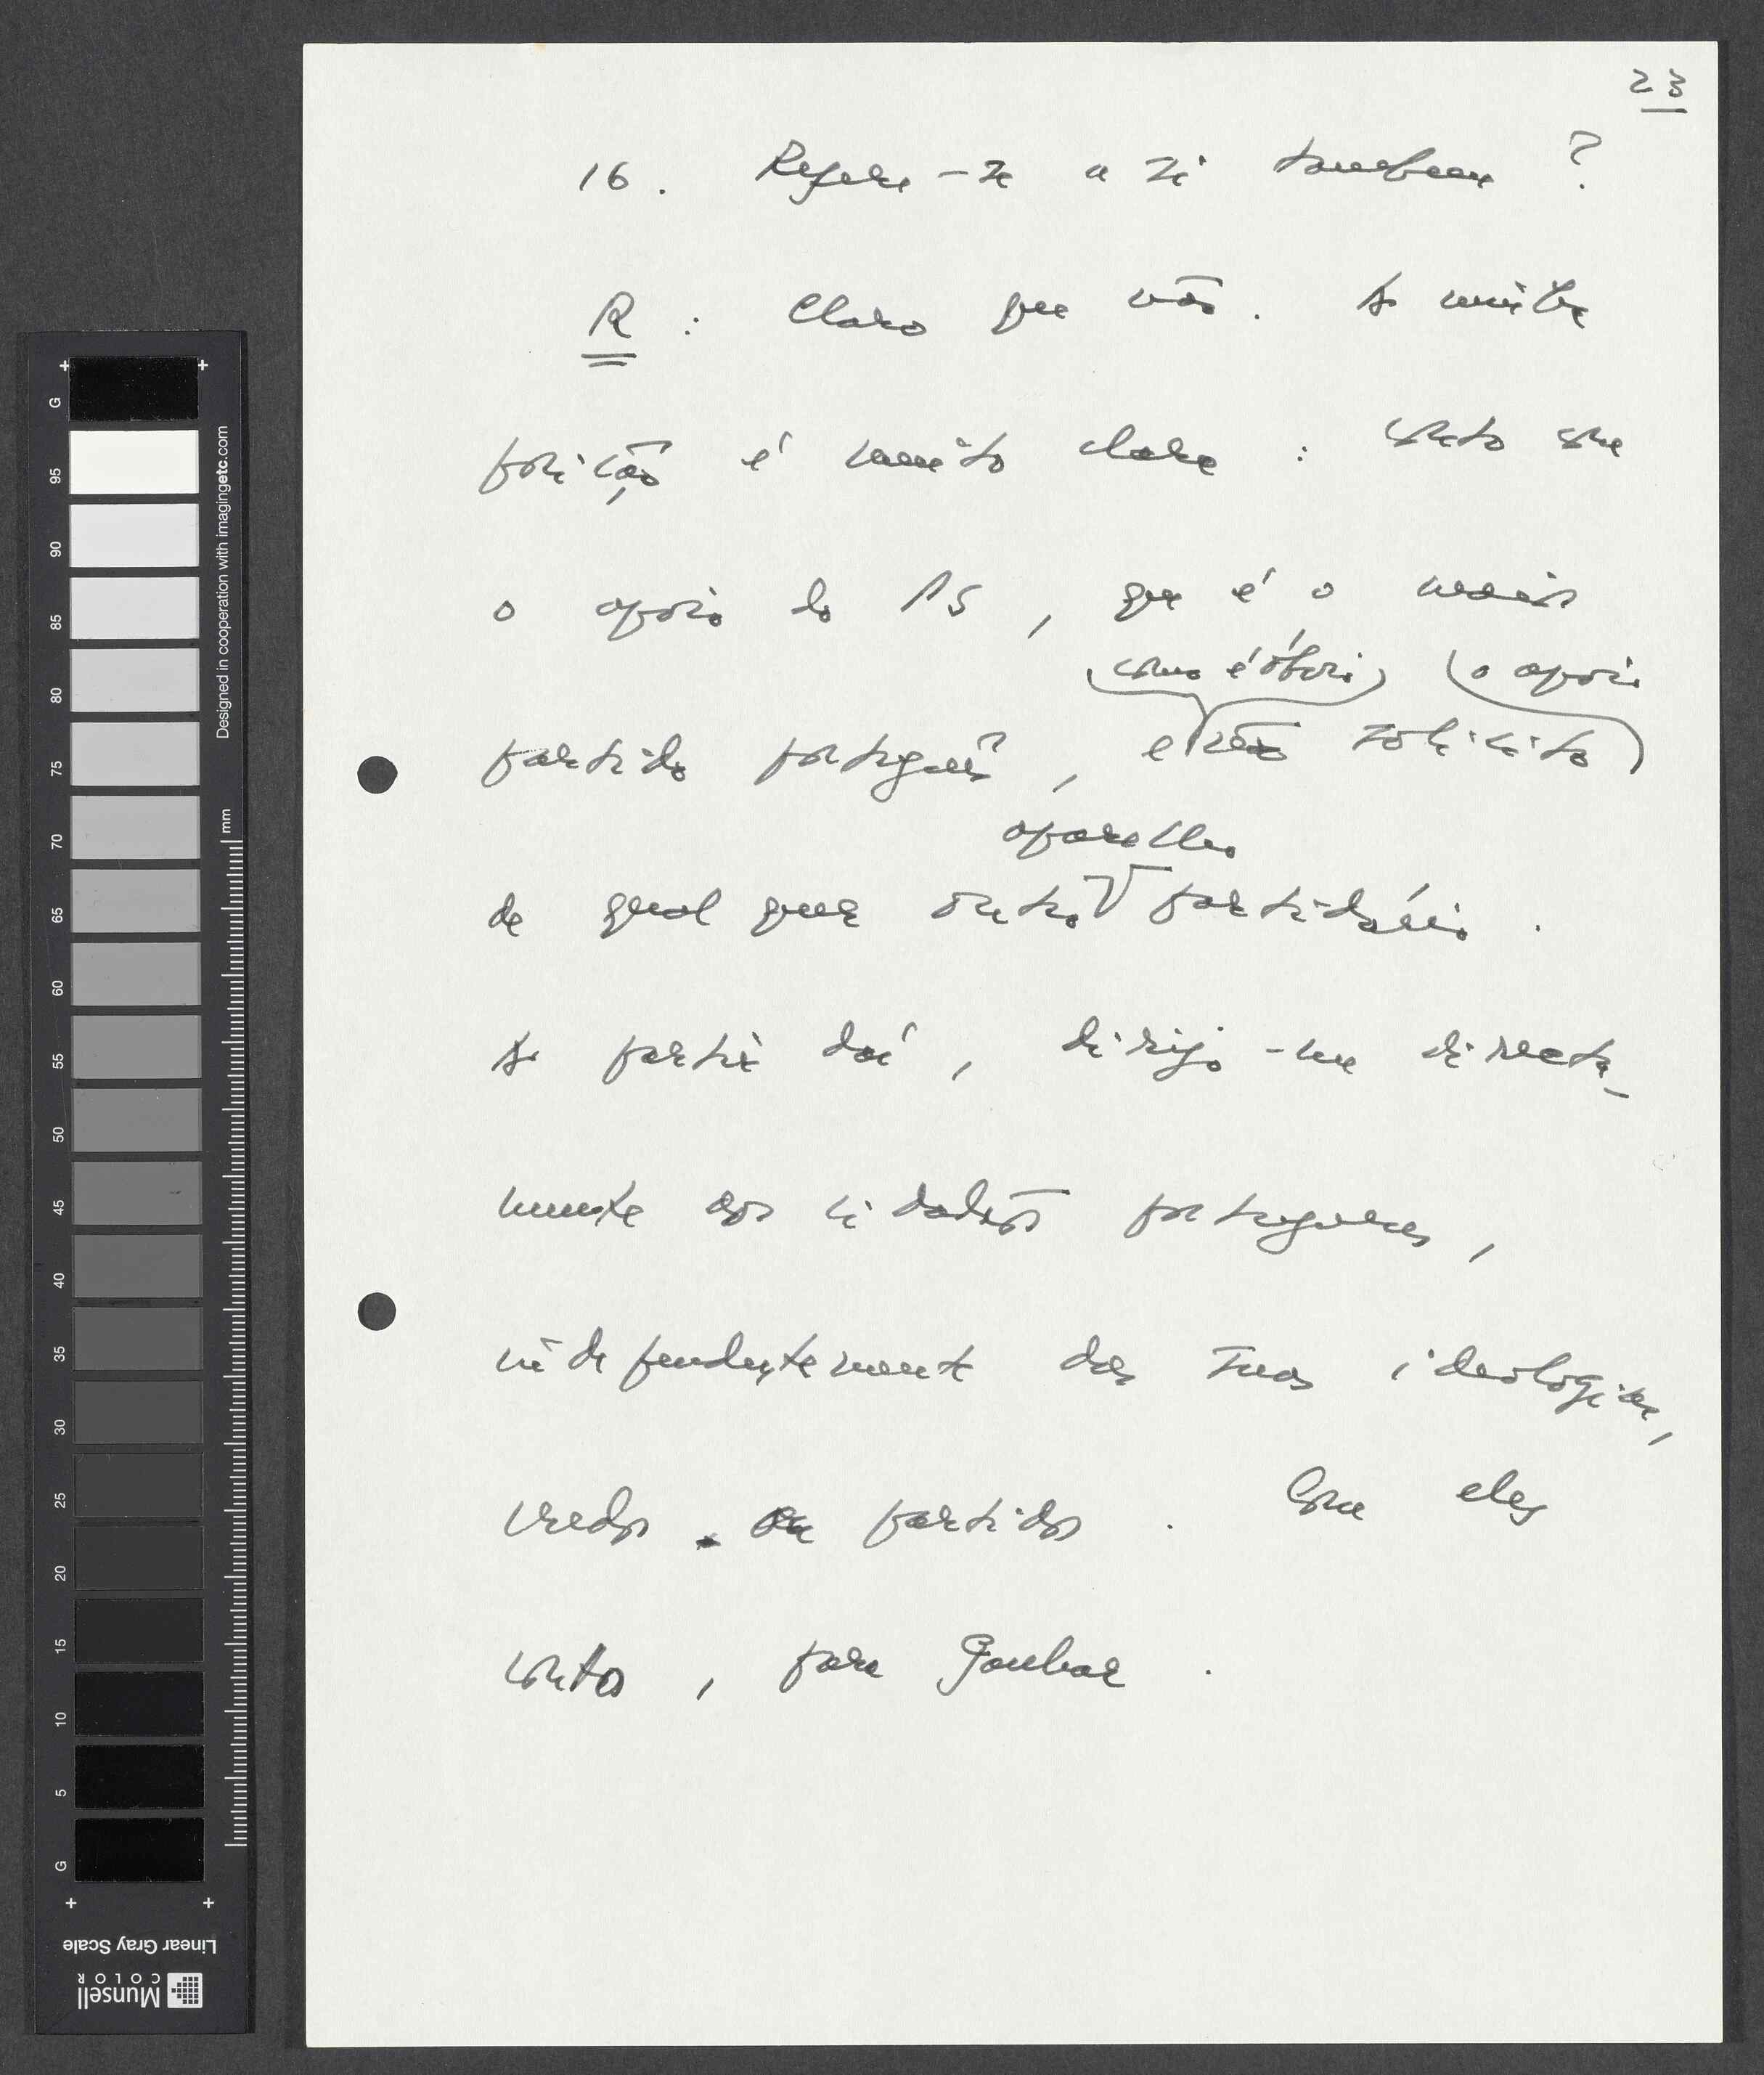 23
16. Refere-se a si também ?
R : Claro que não. A minha
posição é muito clara : conto com
o apoio do PS, que é o maior
como é óbvio o apoio
partido português, e não solicito
aparelho
de qual quer outro partidário.
A partir daí, dirijo-me directa-
mente aos cidadãos portugueses,
independentemente das suas ideologias,
credos ou partidos. Com eles
conto, para ganhar.
G
95
90
85
80
75
70
65
60
55
50
45
40
35
30
25
20
15
10
5
G
mm
Designed in cooperation with imagingetc.com
Linear Gray Scale
Munsell
COLOR